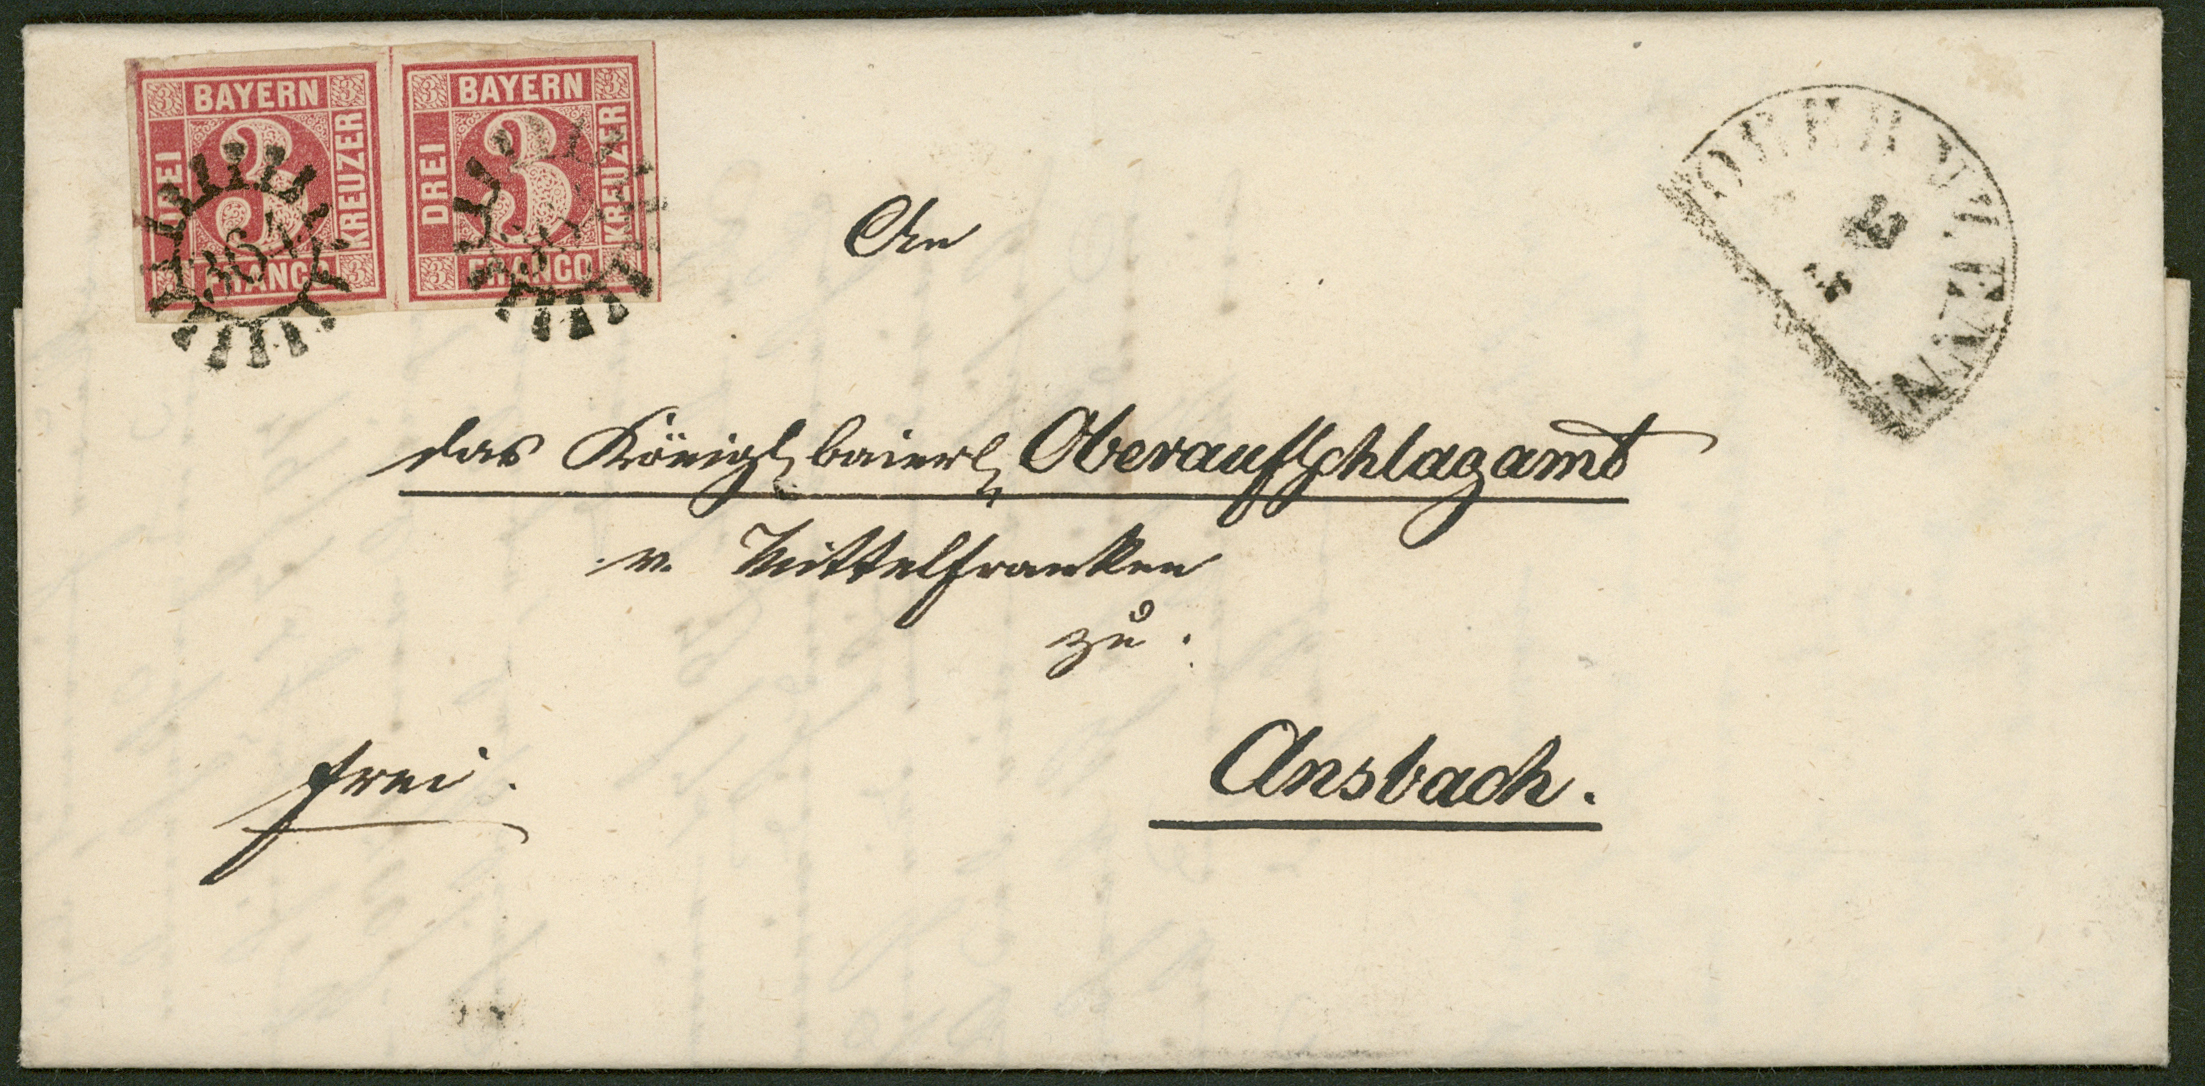 BAYERN
DREI
KREUZER
FRANCO
3
3
3
3
3
BAYERN
DREI
KREUZER
FRANCO
3
3
3
3
3
An
das Königl. baierl. Oberaufschlagamt
v. Mittelfranken
zu
Ansbach.
frei.